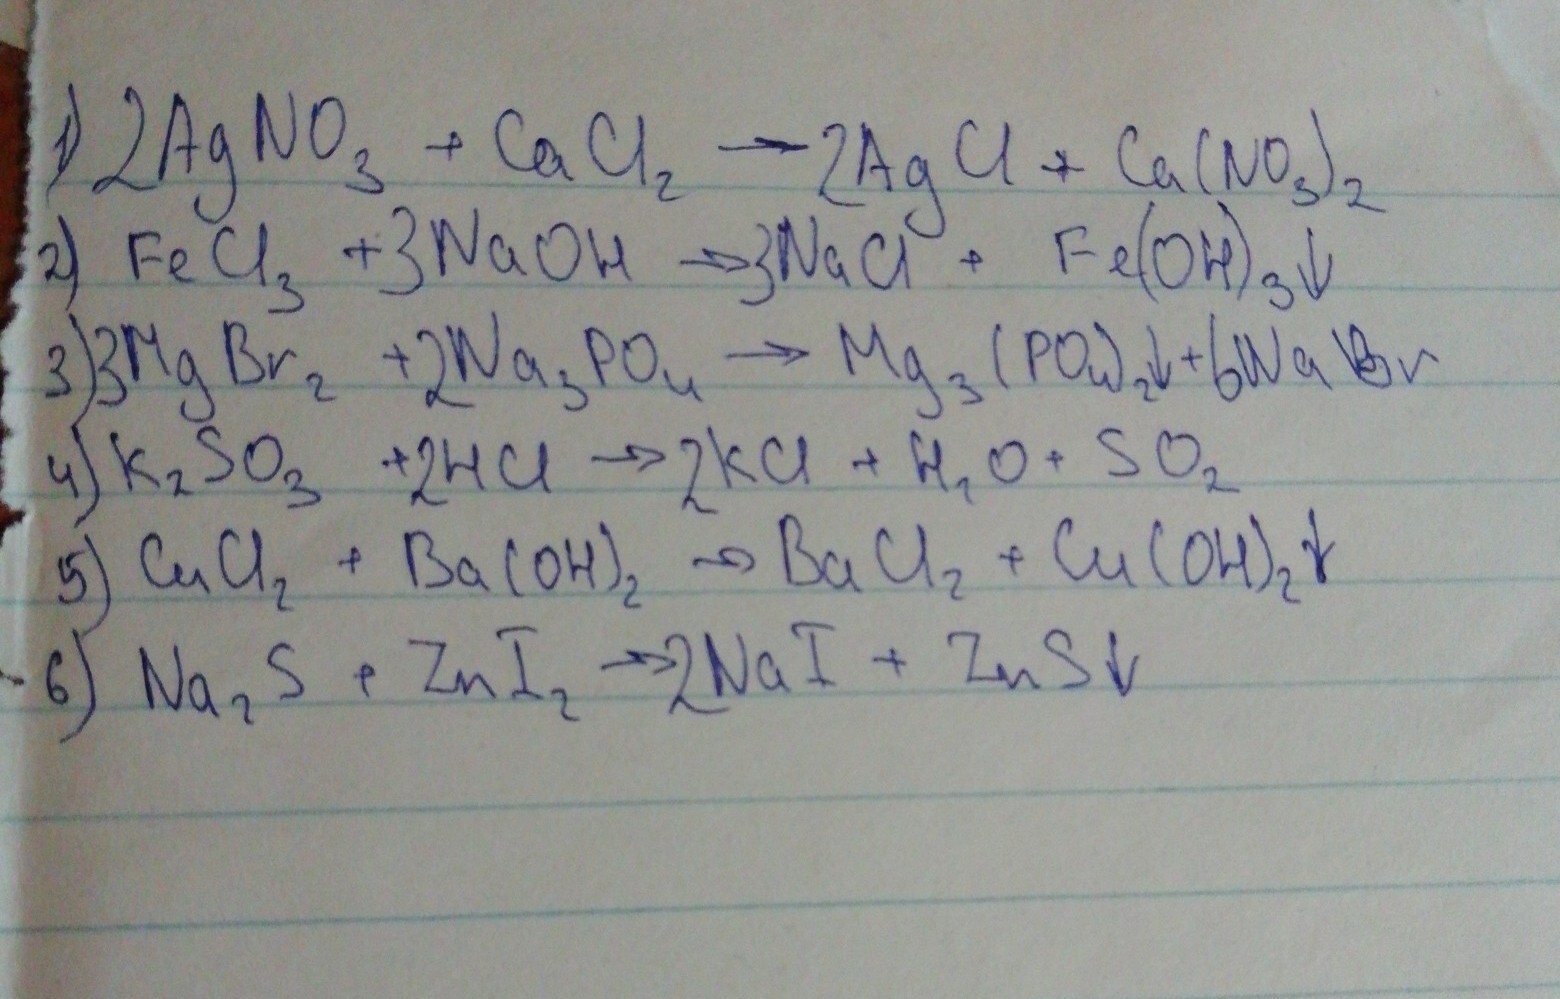 1) 2AgNO₃ + CaCl₂ → 2AgCl + Ca(NO₃)₂
2) FeCl₃ + 3NaOH → 3NaCl + Fe(OH)₃↓
3) 3MgBr₂ + 2Na₃PO₄ → Mg₃(PO₄)₂↓ + 6NaBr
4) K₂SO₃ + 2HCl → 2KCl + H₂O + SO₂
5) CuCl₂ + Ba(OH)₂ → BaCl₂ + Cu(OH)₂↓
6) Na₂S + ZnI₂ → 2NaI + ZnS↓